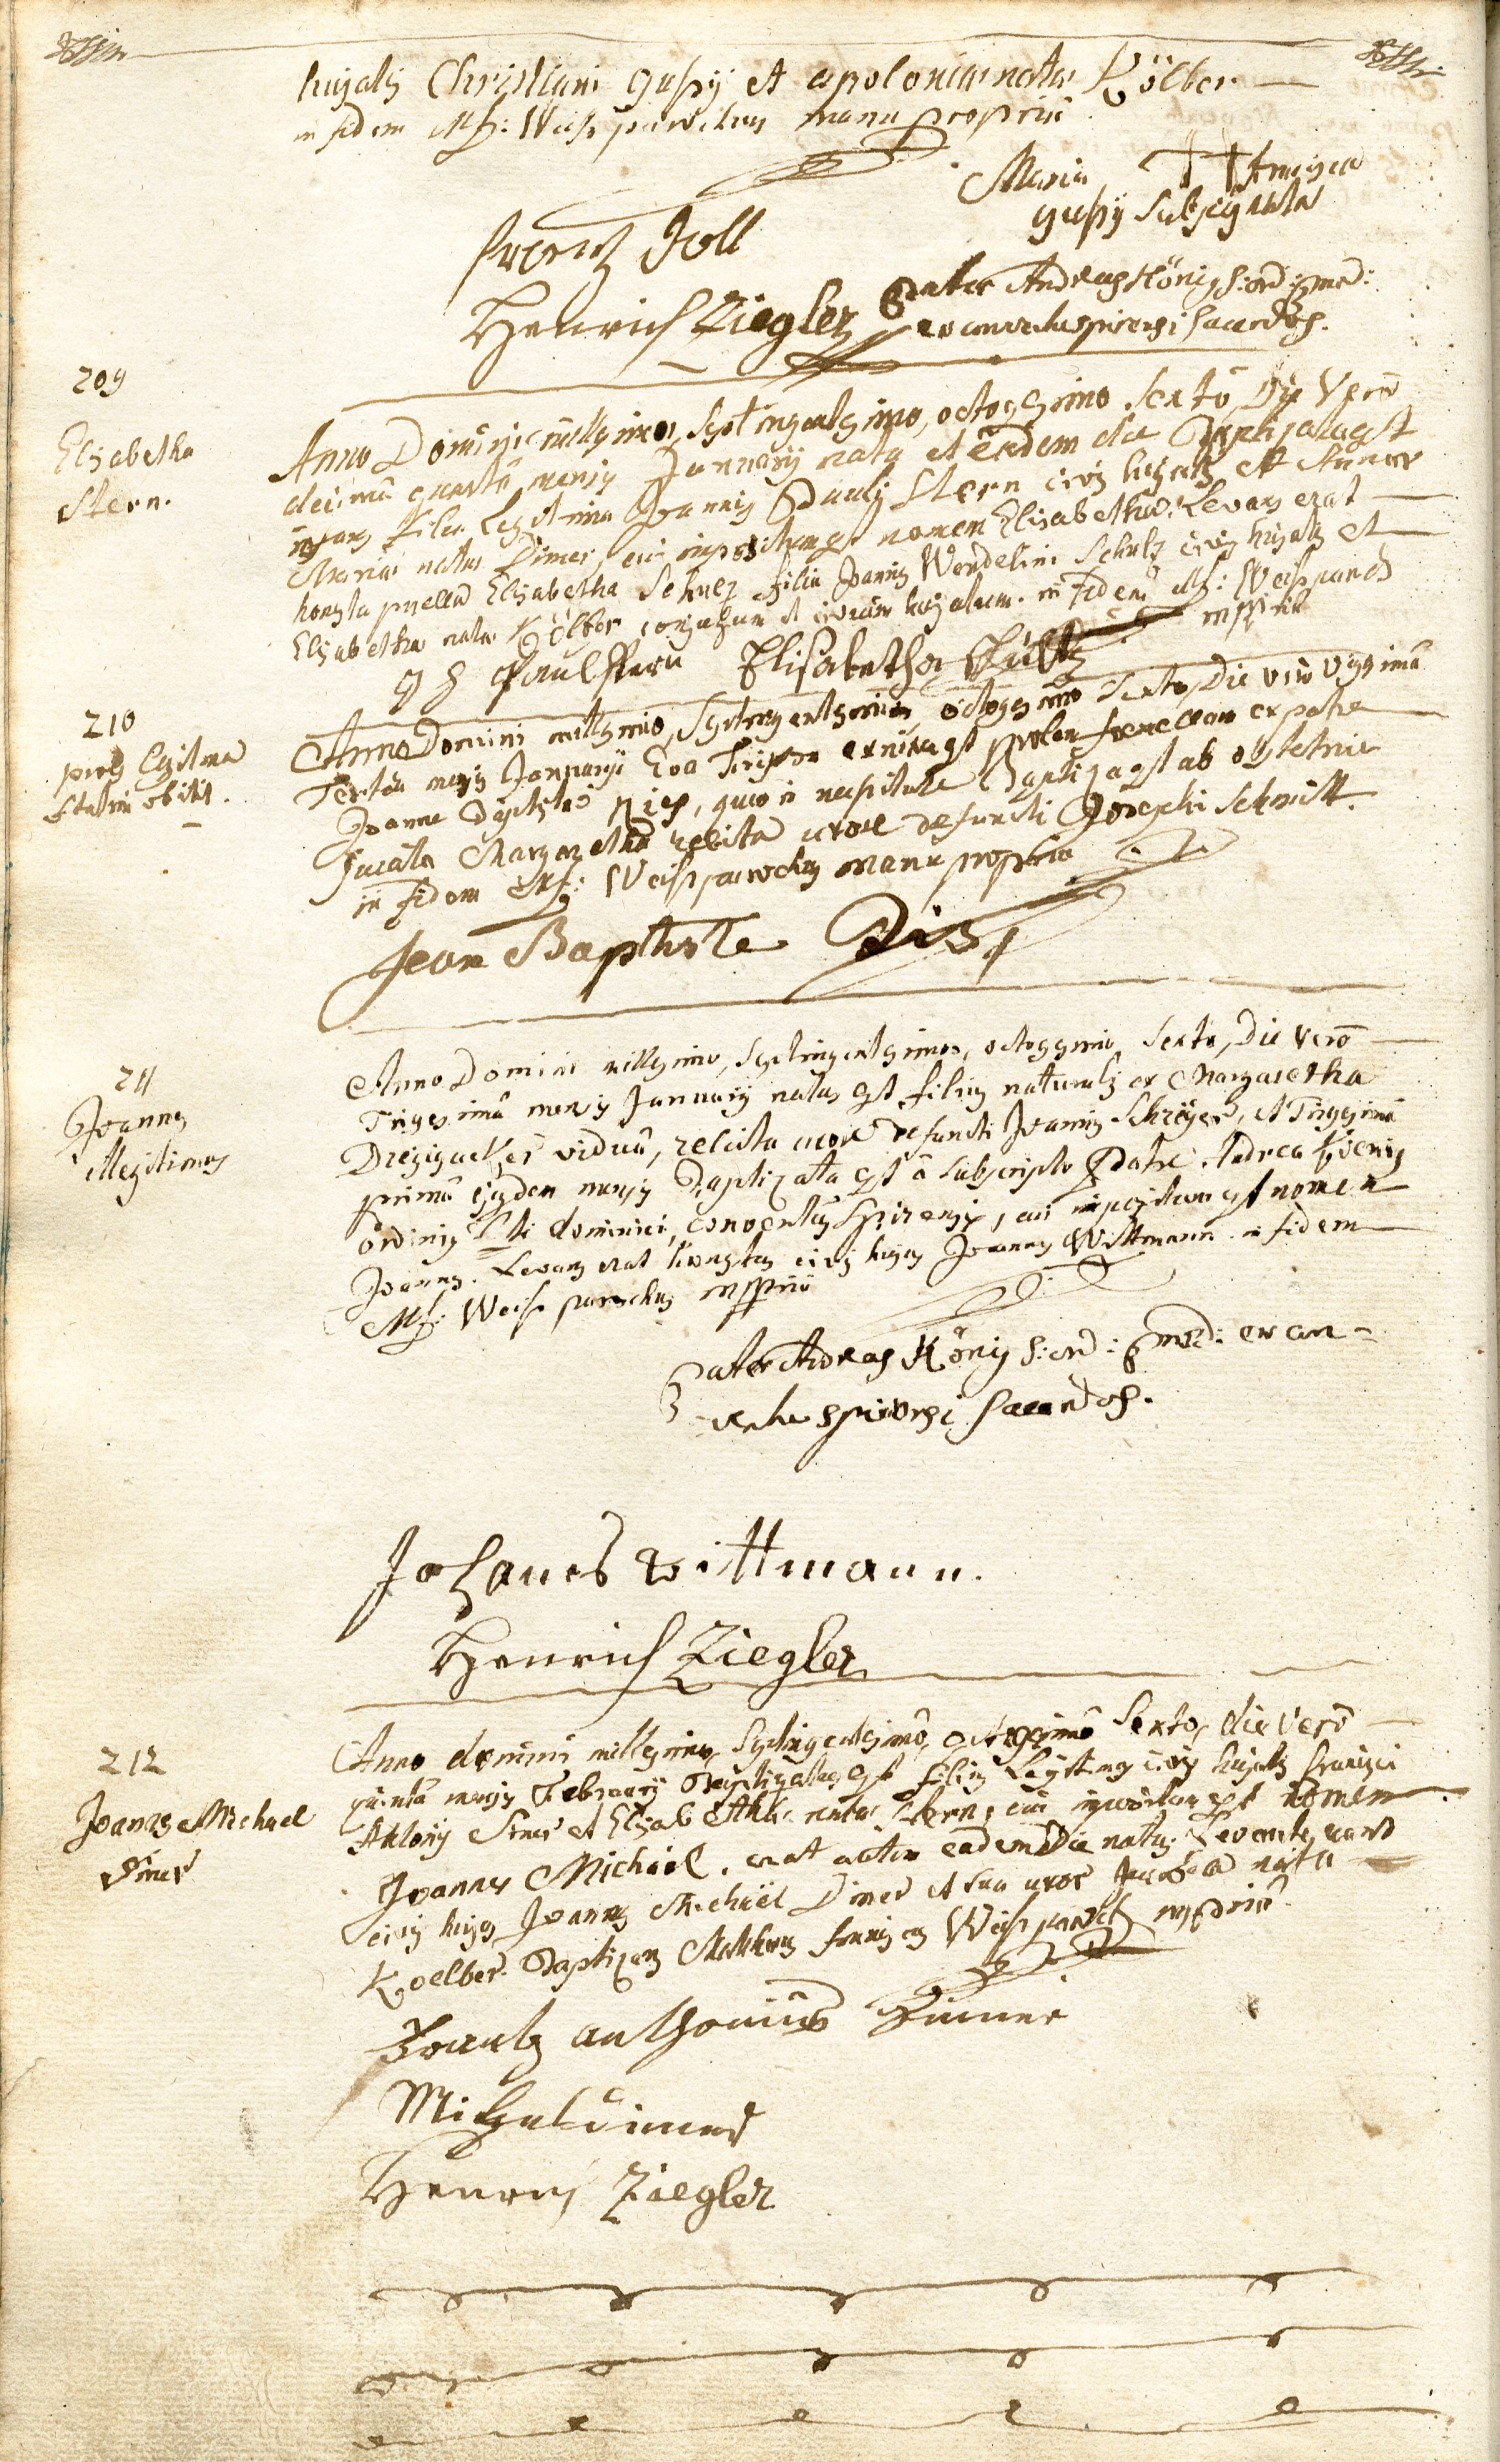 hujatis Christiani gussy et apoloniae natae Kölber
in fidem Mth: Weiss parochus manu propriâ
Maria francisca
gussy subsignata
frantz Joll
Pater Andreas König S: ord: præd:
Henrich Ziegler
e conventu spirensi sacerdos.
209
Elisabetha
Stern.
Anno Domini millesimo, septingentesimo, octogesimo sexto, Die Verò
decimâ quartâ mensis Januarij nata et eâdem die Baptizata est
infans filia Legitima Joannis Pauli Stern civis hujatis et Annae
Mariae natae Dimer, cui impositum est nomen Elisabetha. Levans erat
honesta puella Elisabetha Schulz filia Joannis Wendelini Schulz civis hujatis et
Elisabetha nata Kölber conjugum et civium hujatum. in fidem Mth: Weiss paroch
mppriâ
Paul Stern Elisabetha Schultz
210
proles legitima
statim obiit.
Anno Domini millesimo, septingentesimo, octogesimo sexto, Die verò vigesimâ
Tertiâ mensis Januarij Eva enixa est prolem foemellam ex patre
Joanne Baptista, quae in necessitate Baptizata est ab obstetrice
Jurata Margaretha relicta uxore defuncti Josephi Schmitt.
in fidem Mth: Weiss parochus manu propriâ
Jean Baptiste
211
Joannes
illegitimus
Anno Domini millesimo, septingentesimo, octogesimo sexto, Die Verò
Trigesimâ mensis Januarij natus est filius naturalis ex Margaretha
viduâ, relicta uxore defuncti Joannis Schreyer, et Trigesimâ
primâ ejusdem mensis Baptizata est â subscripto Patre Andrea Koenig
ordinis Sti dominici, conventûs Spirensis, cui impositum est nomen
Joannes. Levans erat honestus civis hujas Joannes Wittmann. in fidem
Mth: Weiss parochus mppriâ
Pater Andreas König S: ord: præd: e con-
ventu spirensi sacerdos.
Johanes Wittmann.
Henrich Ziegler
212
Joannes Michael
Dimer
Anno domini millesimo, septingentesimo, octogesimô sexto, die Verò
quintâ mensis Februarij Baptizatus est filius Legitimus civis hujatis francisci
Antonij Dimer et Elisabethae natae Stern, cui impositum est nomen
Joannes Michael. erat autem eadem Die natus. Levantes erant
civis hujas Joannes Michael Dimer et sua uxor nata
Koelber. Baptizans Matthias Weiss paroch mppriâ
Frantz anthonius Dimmer
Michel dimer
Henrich Ziegler